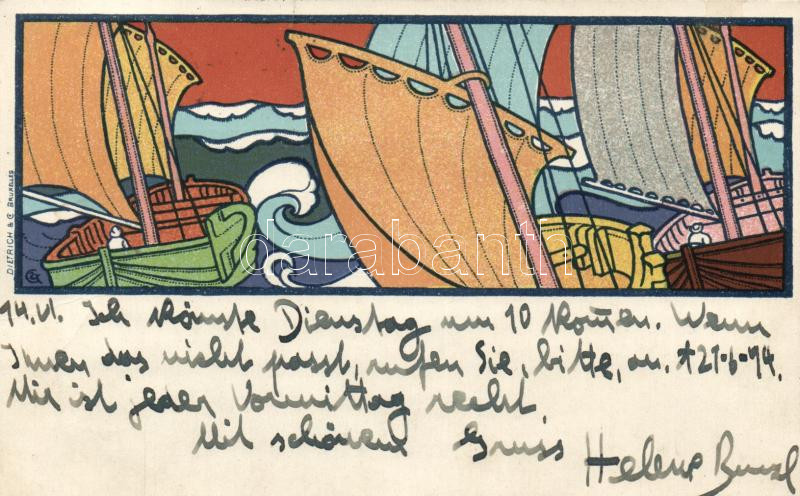 DIETRICH & Cº BRUXELLES
darabanth
14.VI. Ich könnte Dienstag um 10 kom̄en. Wenn
Ihnen das nicht passt, rufen Sie, bitte, an. A 21-6-94.
Mir ist jeder Vormittag recht
Mit schönem Gruss Helene